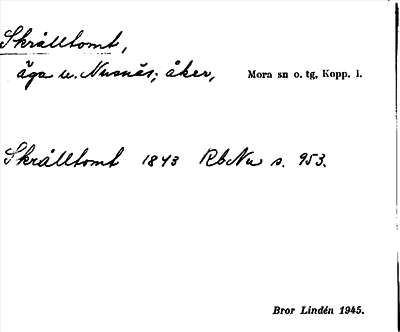 Skrålltomt,
äga u. Nusnäs; åker, Mora sn o. tg, Kopp. l.
Skrålltomt 1843 RbNu s. 953.
Bror Lindén 1945.